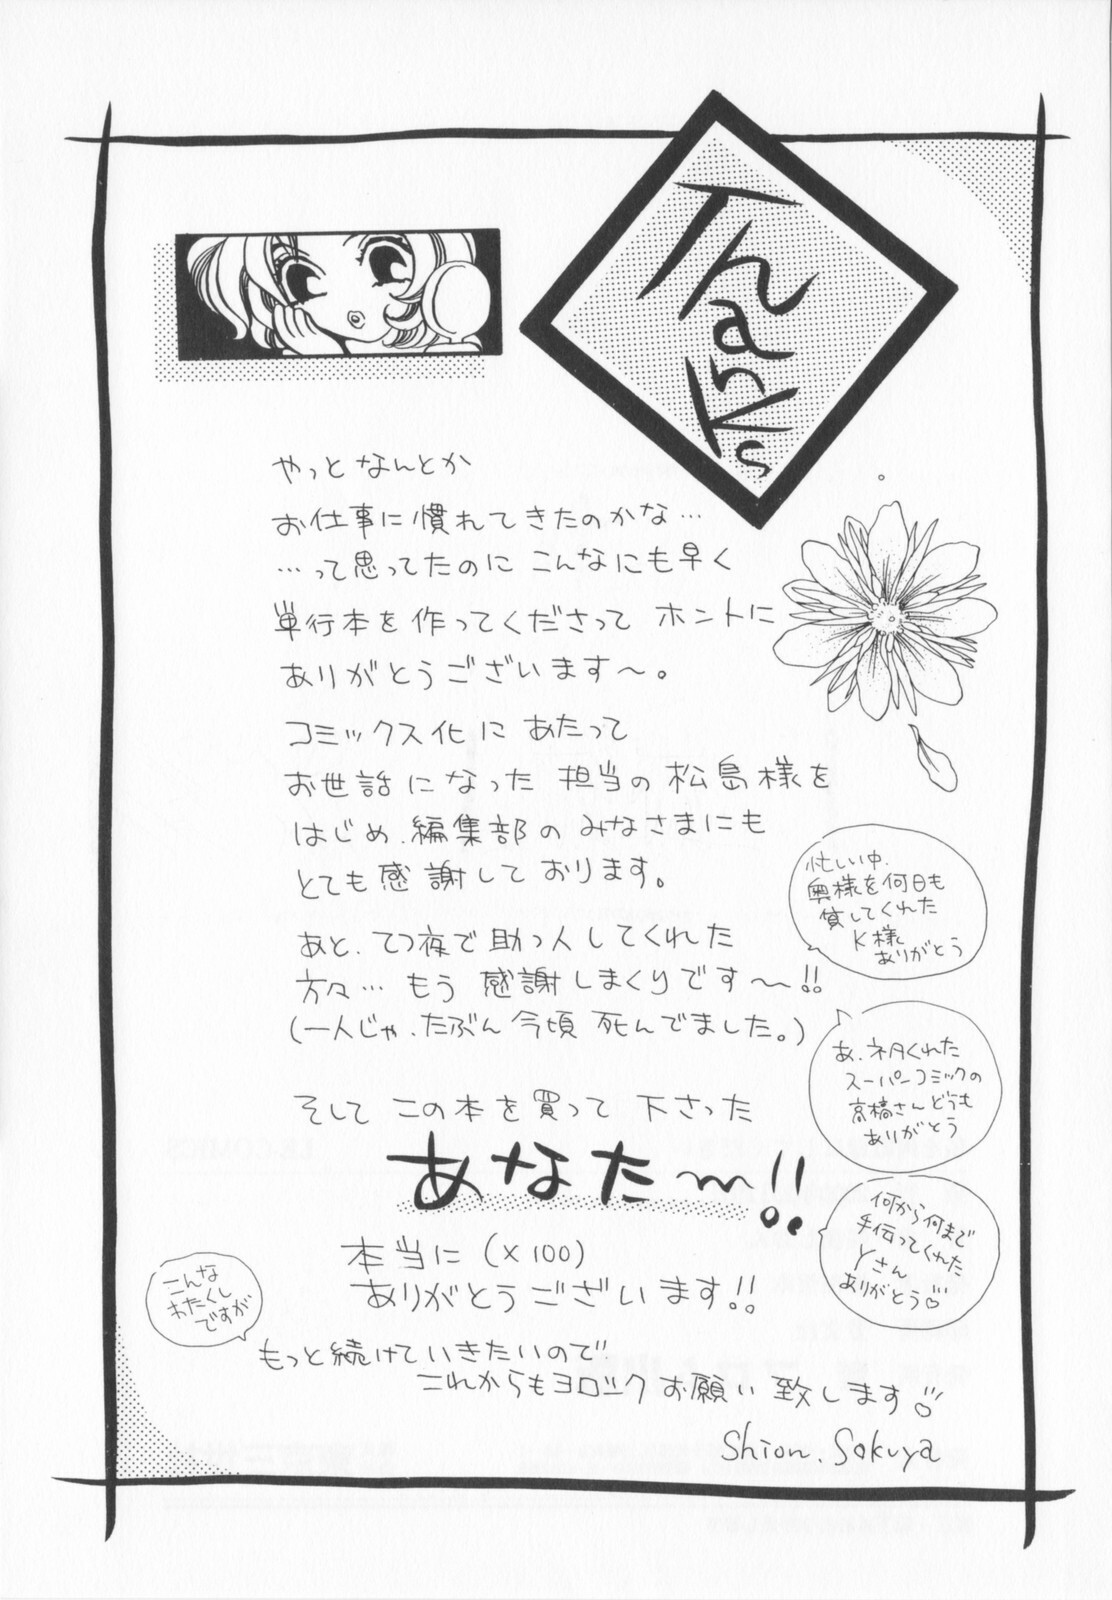 Thanks
やっとなんとか
お仕事に慣れてきたのかな…
…って思ってたのに こんなにも早く
単行本を作ってくださって ホントに
ありがとうございます〜。
コミックス化に あたって
お世話になった 担当の松島様を
はじめ、編集部のみなさまにも
とても感謝しております。
忙しい中、
奥様を何日も
貸してくれた
K様
ありがとう
あと、てつ夜で助っ人してくれた
方々… もう 感謝しまくりです〜!!
(一人じゃ、たぶん今頃 死んでました。)
あ、ネタくれた
スーパーコミックの
高橋さんどうも
ありがとう
そして この本を買って 下さった
あなた〜!!
何から何まで
手伝ってくれた
Yさん
ありがとう♡
本当に (×100)
ありがとうございます!!
こんな
わたくし
ですが
もっと続けていきたいので
これからもヨロシク お願い致します♡
Shion. Sakuya